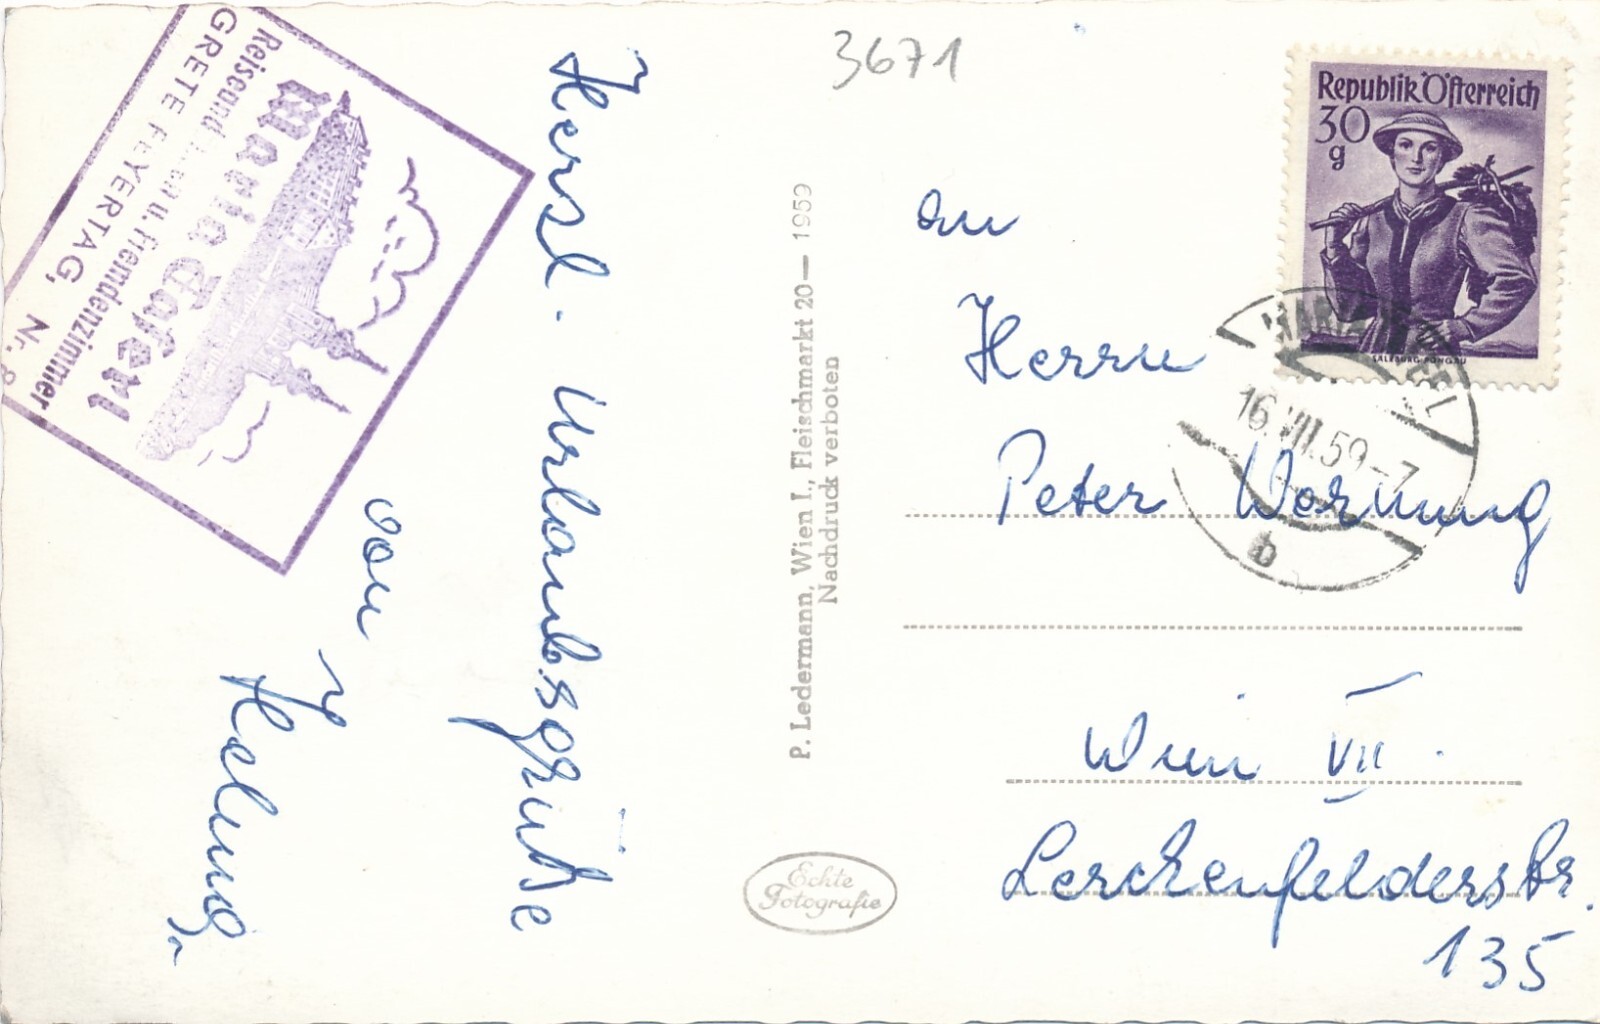 3671
Republik Österreich
30
g
SALZBURG-PONGAU
MARIA TAFERL
16.VII.59-7
b
Maria Taferl
Reiseand. u. Fremdenzimmer
GRETE FEYERTAG, Nr. 8
Herzl. Urlaubsgrüße
von
P. Ledermann, Wien I., Fleischmarkt 20— 1959
Nachdruck verboten
Echte
Fotografie
An
Herrn
Peter Wornung
Wien VII.
Lerchenfelderstr.
135